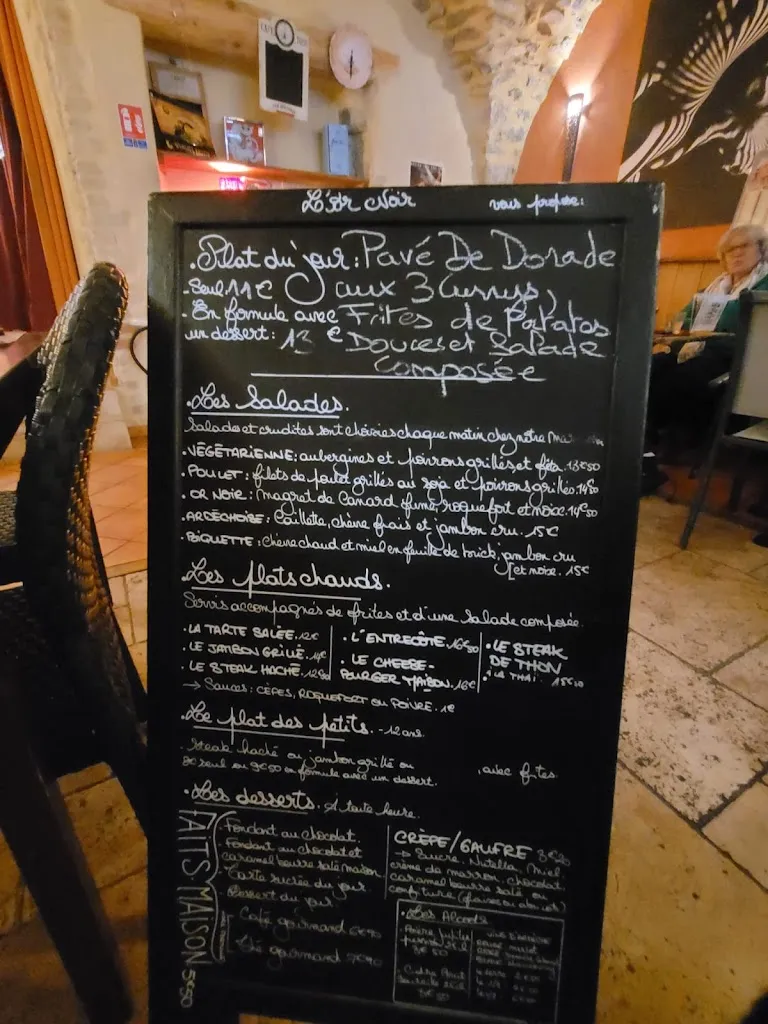 L'Or Noir vous propose:
• Plat du jour: Pavé De Dorade
• Seul: 11€ aux 3 Currys,
• En formule avec Frites de Patates
un dessert: 13€ Douces et Salade
Composée
• Les Salades.
Salades et crudités sont choisies chaque matin chez notre
• VÉGÉTARIENNE: aubergines et poivrons grillés et féta. 13€50
• POULET: filets de poulet grillés au soja et poivrons grillés. 14€50
• OR NOIR: magret de Canard fumé, roquefort et noix. 14€50
• ARDÉCHOISE: Caillette, chèvre frais et jambon cru. 15€
• BIQUETTE: chèvre chaud et miel en feuille de brick, jambon cru
[et noix. 15€
• Les plats chauds.
Servis accompagnés de frites et d'une salade composée.
• LA TARTE SALÉE. 12€
• LE JAMBON GRILLÉ. 14€
• LE STEAK HACHÉ. 12€50
• L'ENTRECÔTE. 16€50
• LE CHEESE-
BURGER MAISON. 16€
• LE STEAK
DE THON
À LA THAÏ.
→ Sauces: CÈPES, ROQUEFORT OU POIVRE. 1€
• Le plat des petits. -12 ans
• Steak haché ou jambon grillé ou
, avec frites.
8€ seul ou 9€50 en formule avec un dessert.
• Les desserts. À toute heure.
FAITS MAISON 5€50
• Fondant au chocolat.
• Fondant au chocolat et
caramel beurre salé maison
• Tarte sucrée du jour
• Dessert du jour
• Café gourmand
• Thé gourmand
CRÊPE/GAUFRE 3€50
→ Sucre, Nutella, Miel,
crème de marron, chocolat,
caramel beurre salé ou
confiture
• Les Alcools